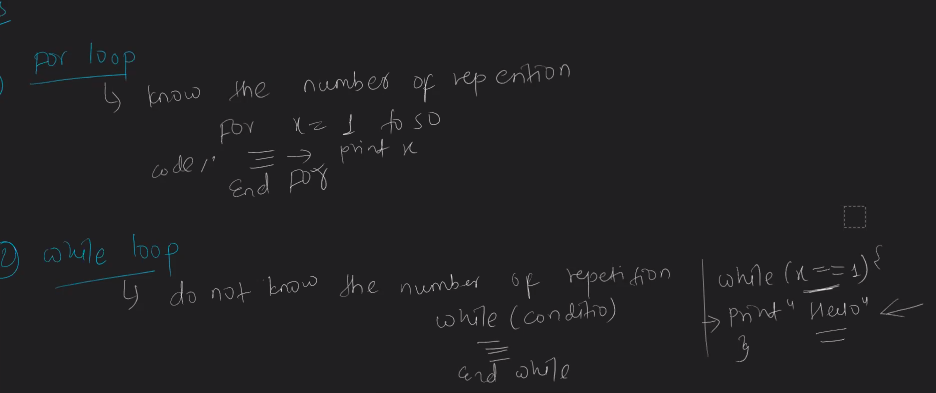 For loop
↳ know the number of repention
For x = 1 to 50
code :
→ print x
End For
2) while loop
↳ do not know the number of repetition
while (conditio)
end while
while (x == 1) {
→ print " Hello" ←
}